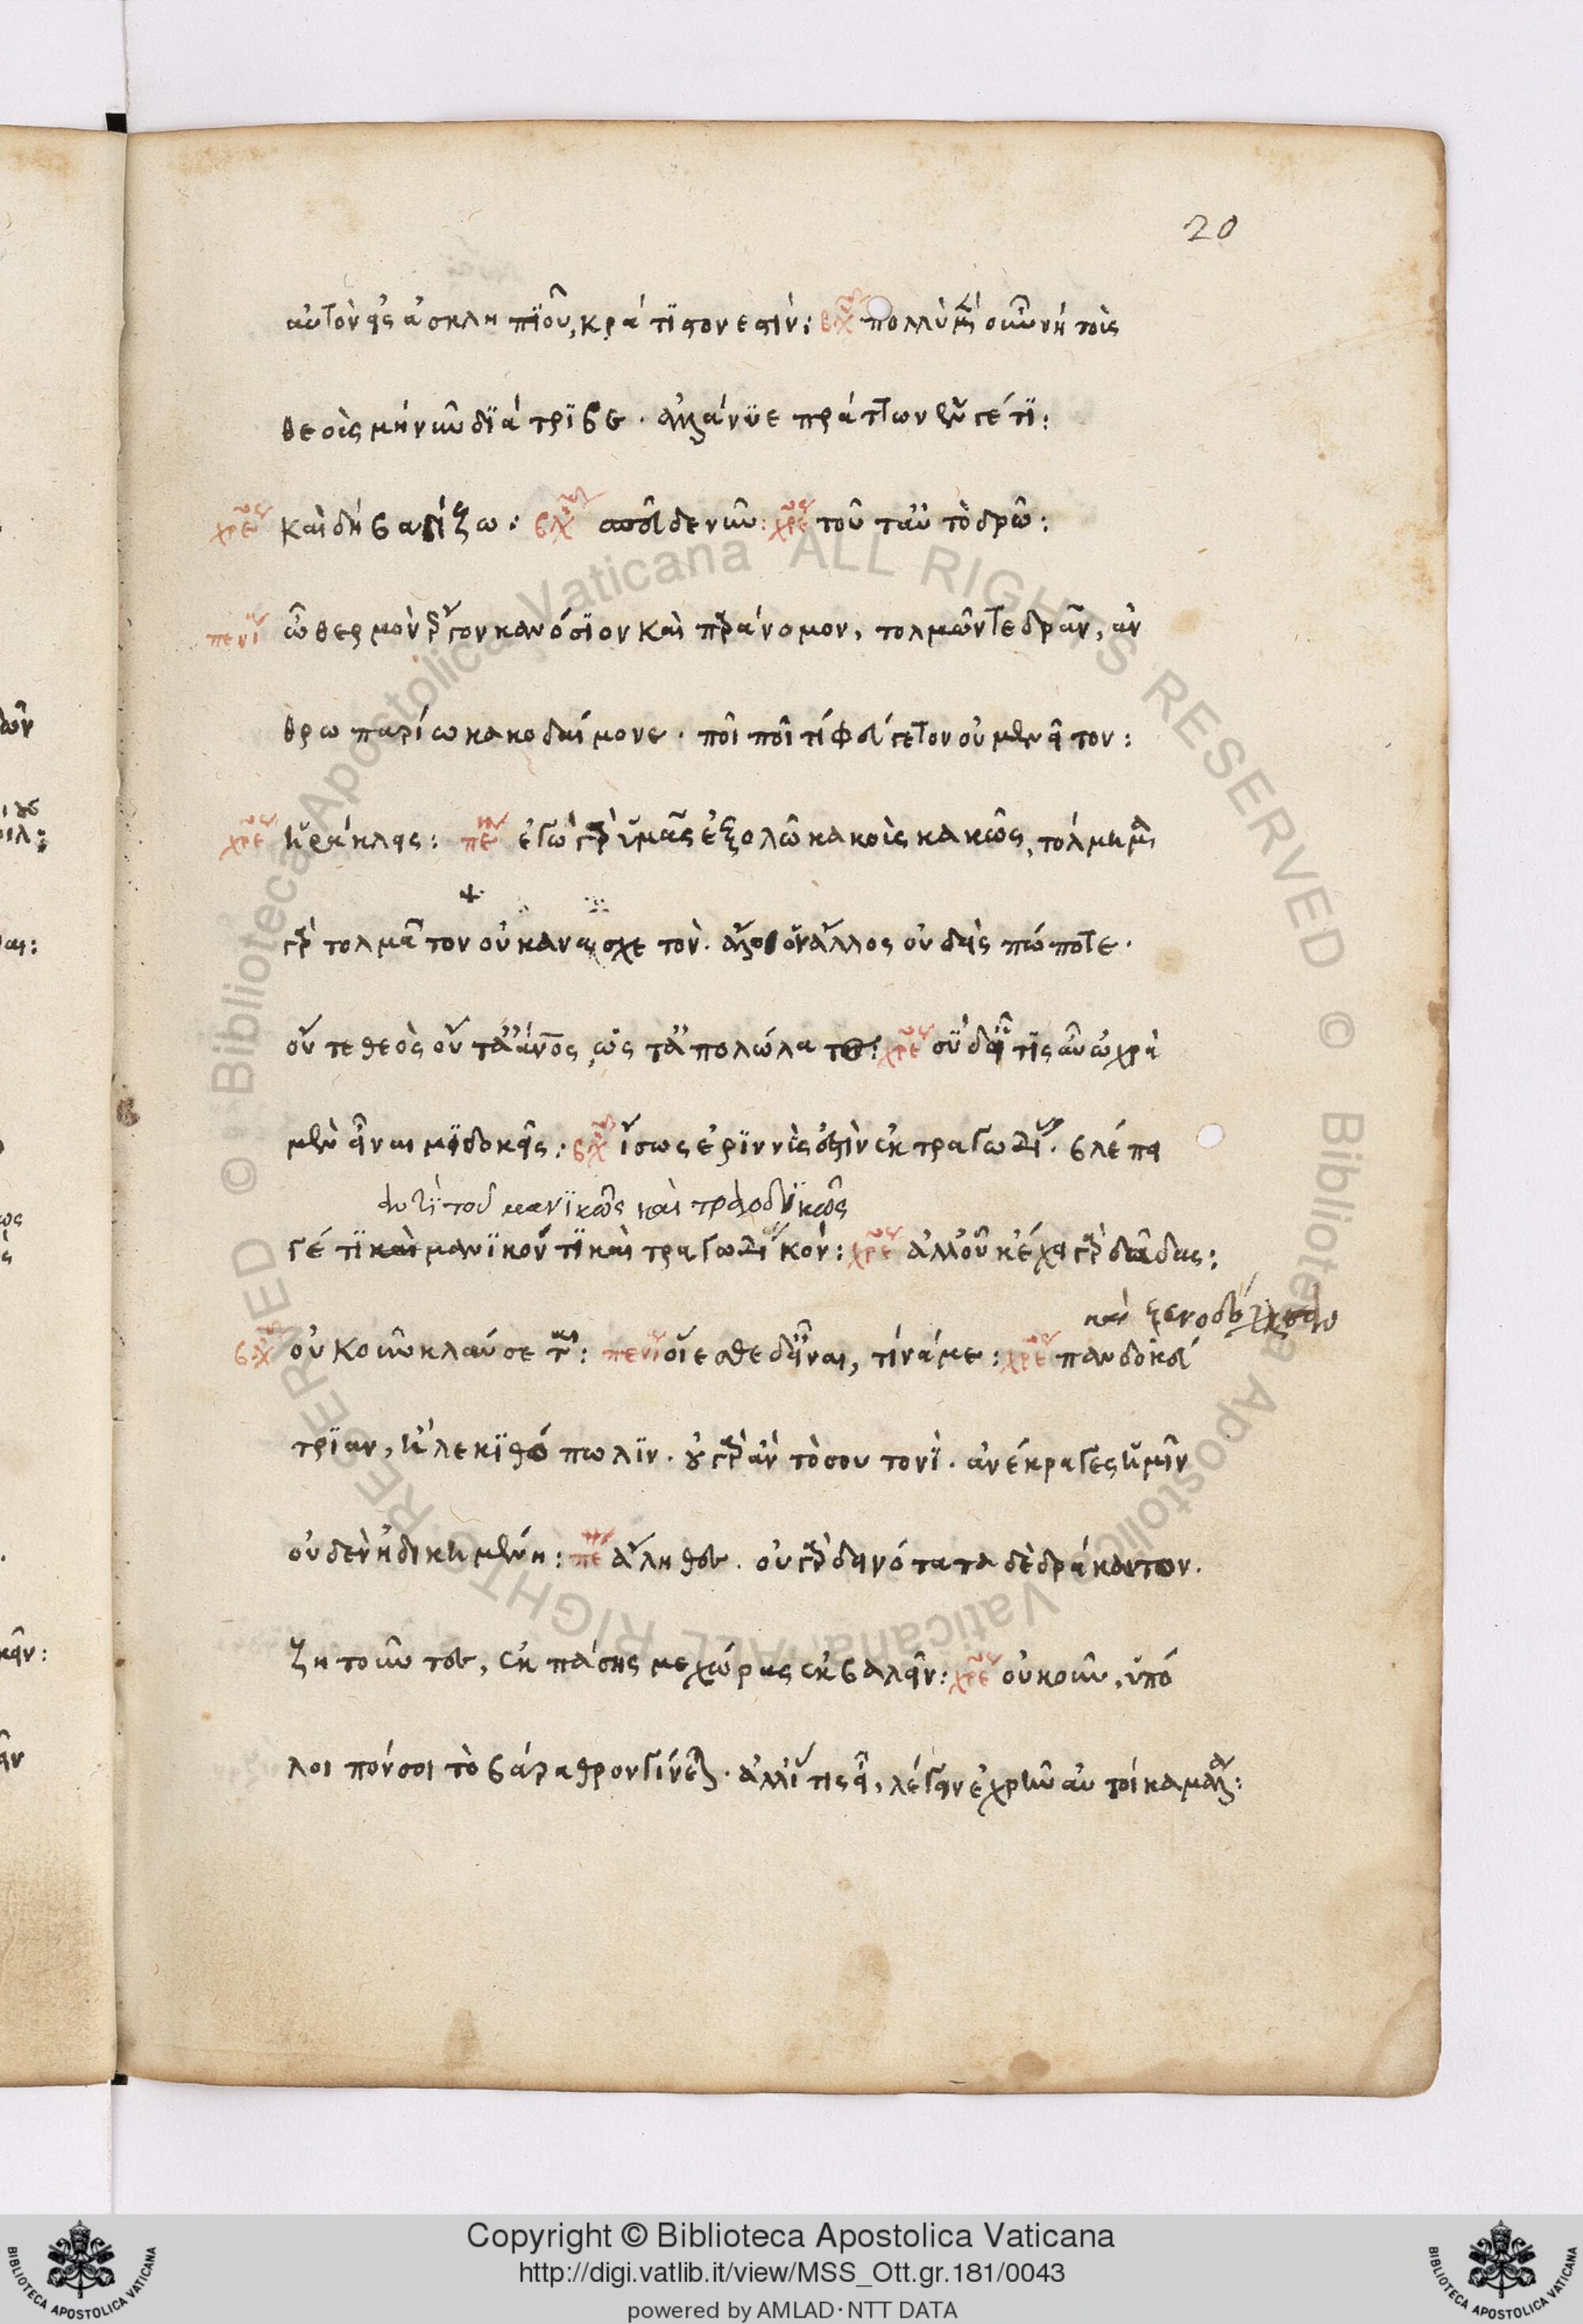 20
αὐτὸν εἰς ἀσκληπϊοῦ, κράτϊστον ἐστίν: βλεψ πολλὺ μὲν οὖν νὴ τοὶς
θεοὶς μὴν νῦν δϊάτρϊβε. ἀλλάνϋε πράττων ἕν γέ τϊ:
χρεμ καὶ δὴ βαδίζω: βλεψ σπεῦδε νῦν: χρεμ τοῦτ αὐτὸ δρῶ:
πενί ὦ θερμὸν ἔργον κανόσϊον καὶ παράνομον, τολμῶντε δρᾶν, ἀν
θρωπαρίω κακοδαίμονε. ποῖ ποῖ τί φεύγετον οὐ μενεῖτον:
χρεμ ἡράκλεις: πεν ἐγὼ γὰρ ὑμᾶς ἐξολῶ κακοὶς κακῶς, τόλμημα
γὰρ τολμᾶτον οὐκ ανασχετὸν. ἀλλοῖον ἄλλος οὐδεὶς πώποτε.
οὔτε θεὸς οὔτ ἄνος, ὡς τἀπολώλατον: χρεμ σὺ δεῖ τϊς αὖ ὠχρὰ
μὲν εἶναι μϊ δοκεῖς: βλεψ ἴσως ἐρϊννὶς ἐστὶν ἐκ τραγωδί. βλέπει
ἀντὶ τοῦ μανϊκῶς καὶ τραγοδϊκῶς
γέ τϊ καὶ μανϊκόν τϊ καὶ τραγωδϊκόν: χρεμ ἀλλ οὐκ ἔχει γὰρ δαδας:
καὶ
βλεψ οὐκοῦν κλαύσεται: πενί οἴεσθε δεῖναι, τίνά με: χρεμ πανδοκεύ
τρϊαν, ἢ λεκϊθόπωλϊν. οὐ γὰρ ἂν τοσουτονὶ. ἀνέκραγες ἡμῖν
οὐδὲν ἠδικημένη: πε ἄληθες. οὐ γὰρ δεινότατα δὲδράκατον.
ζητοῦντες, ἐκ πάσης με χώρας ἐκβαλεῖν: χρεμ οὐκοῦν, ὑπό
λοιπόν σοι τὸ βάραθρον γίνεται. ἀλλ ἥτις εἶ, λέγειν ἐχρῆν αὐτίκα μάλα:
Copyright © Biblioteca Apostolica Vaticana
http://digi.vatlib.it/view/MSS_Ott.gr.181/0043
powered by AMLAD · NTT DATA
BIBLIOTECA APOSTOLICA VATICANA
BIBLIOTECA APOSTOLICA VATICANA
© Biblioteca Apostolica Vaticana ALL RIGHTS RESERVED © Biblioteca Apostolica Vaticana ALL RIGHTS RESERVED